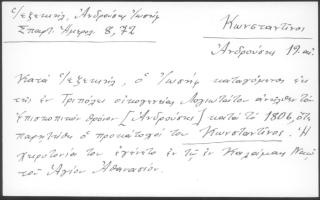 Ἀνδρούσης Ἰωσὴφ
Σπαρτ. Ἡμερ. 8, 72
Κωνσταντῖνος
Ἀνδρούσης 19 αἰ.
Κατὰ ὁ Ἰωσὴφ καταγόμενος ἐκ
τῆς ἐν Τριπόλει οἰκογενείας ἀνῆλθεν τὸν
ἐπισκοπικὸν θρόνον [Ἀνδρούσης] κατὰ τὸ 1806, ὅτε
παρῃτήθη ὁ προκάτοχός του Κωνσταντῖνος. Ἡ
χειροτονία του ἐγένετο ἐν τῷ ἐν Καλάμαις Ναῷ
τοῦ Ἁγίου Ἀθανασίου.